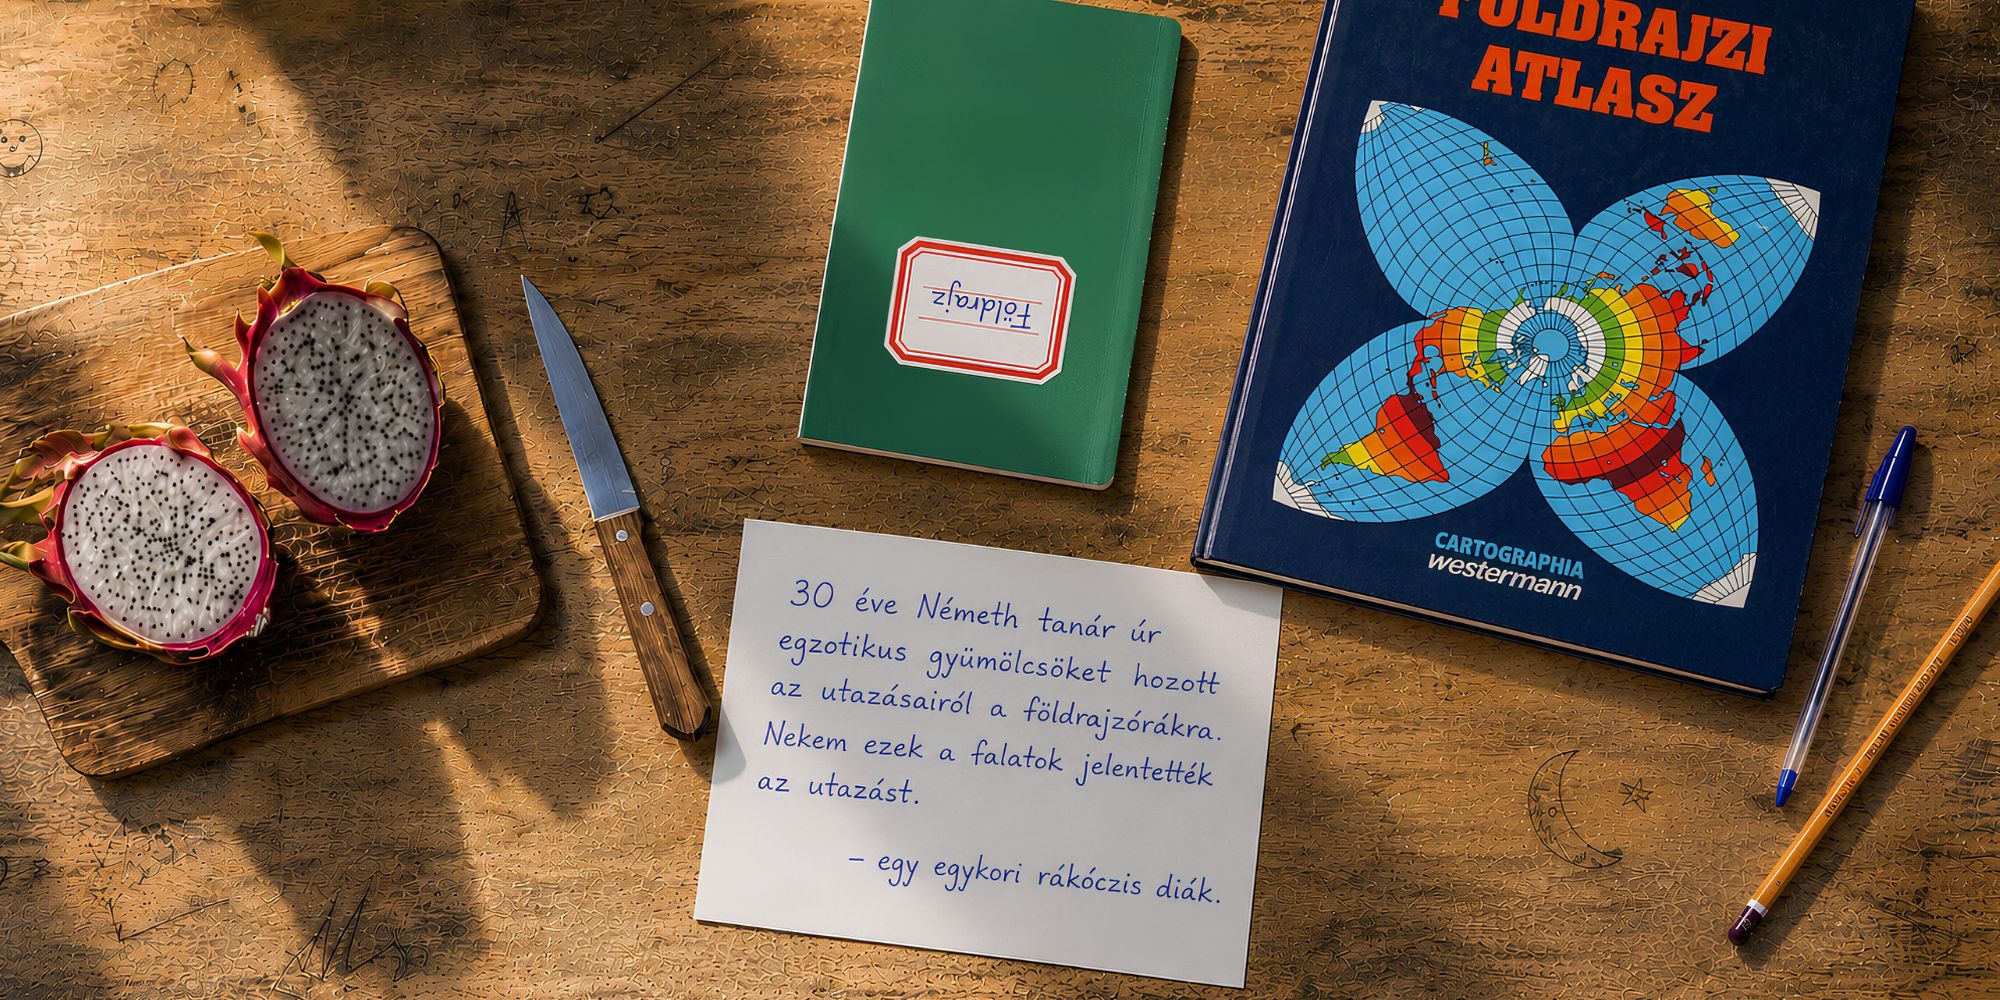 Földrajz
FÖLDRAJZI
ATLASZ
CARTOGRAPHIA
westermann
30 éve Németh tanár úr
egzotikus gyümölcsöket hozott
az utazásairól a földrajzórákra.
Nekem ezek a falatok jelentették
az utazást.
– egy egykori rákóczis diák.